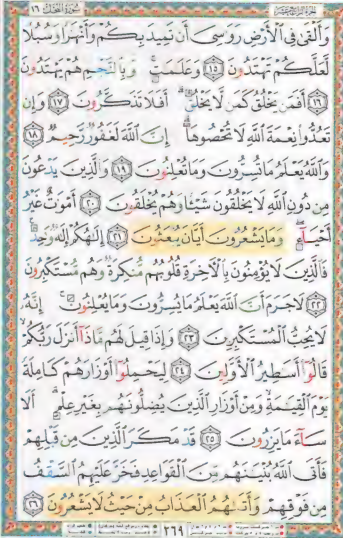 سُورَةُ النَّحْلِ ١٦
وَأَلْقَىٰ فِى ٱلْأَرْضِ رَوَٰسِىَ أَن تَمِيدَ بِكُمْ وَأَنْهَٰرًا وَسُبُلًا
لَّعَلَّكُمْ تَهْتَدُونَ ١٥ وَعَلَٰمَٰتٍ وَبِٱلنَّجْمِ هُمْ يَهْتَدُونَ
١٦ أَفَمَن يَخْلُقُ كَمَن لَّا يَخْلُقُ أَفَلَا تَذَكَّرُونَ ١٧ وَإِن
تَعُدُّوا۟ نِعْمَةَ ٱللَّهِ لَا تُحْصُوهَآ إِنَّ ٱللَّهَ لَغَفُورٌ رَّحِيمٌ ١٨
وَٱللَّهُ يَعْلَمُ مَا تُسِرُّونَ وَمَا تُعْلِنُونَ ١٩ وَٱلَّذِينَ يَدْعُونَ
مِن دُونِ ٱللَّهِ لَا يَخْلُقُونَ شَيْـًٔا وَهُمْ يُخْلَقُونَ ٢٠ أَمْوَٰتٌ غَيْرُ
أَحْيَآءٍ وَمَا يَشْعُرُونَ أَيَّانَ يُبْعَثُونَ ٢١ إِلَٰهُكُمْ إِلَٰهٌ وَٰحِدٌ
فَٱلَّذِينَ لَا يُؤْمِنُونَ بِٱلْأَخِرَةِ قُلُوبُهُم مُّنكِرَةٌ وَهُم مُّسْتَكْبِرُونَ
٢٢ لَا جَرَمَ أَنَّ ٱللَّهَ يَعْلَمُ مَا يُسِرُّونَ وَمَا يُعْلِنُونَ إِنَّهُۥ
لَا يُحِبُّ ٱلْمُسْتَكْبِرِينَ ٢٣ وَإِذَا قِيلَ لَهُم مَّاذَآ أَنزَلَ رَبُّكُمْ
قَالُوٓا۟ أَسَٰطِيرُ ٱلْأَوَّلِينَ ٢٤ لِيَحْمِلُوٓا۟ أَوْزَارَهُمْ كَامِلَةً
يَوْمَ ٱلْقِيَٰمَةِ وَمِنْ أَوْزَارِ ٱلَّذِينَ يُضِلُّونَهُم بِغَيْرِ عِلْمٍ أَلَا
سَآءَ مَا يَزِرُونَ ٢٥ قَدْ مَكَرَ ٱلَّذِينَ مِن قَبْلِهِمْ
فَأَتَى ٱللَّهُ بُنْيَٰنَهُم مِّنَ ٱلْقَوَاعِدِ فَخَرَّ عَلَيْهِمُ ٱلسَّقْفُ
مِن فَوْقِهِمْ وَأَتَىٰهُمُ ٱلْعَذَابُ مِنْ حَيْثُ لَا يَشْعُرُونَ ٢٦
٢٦٩